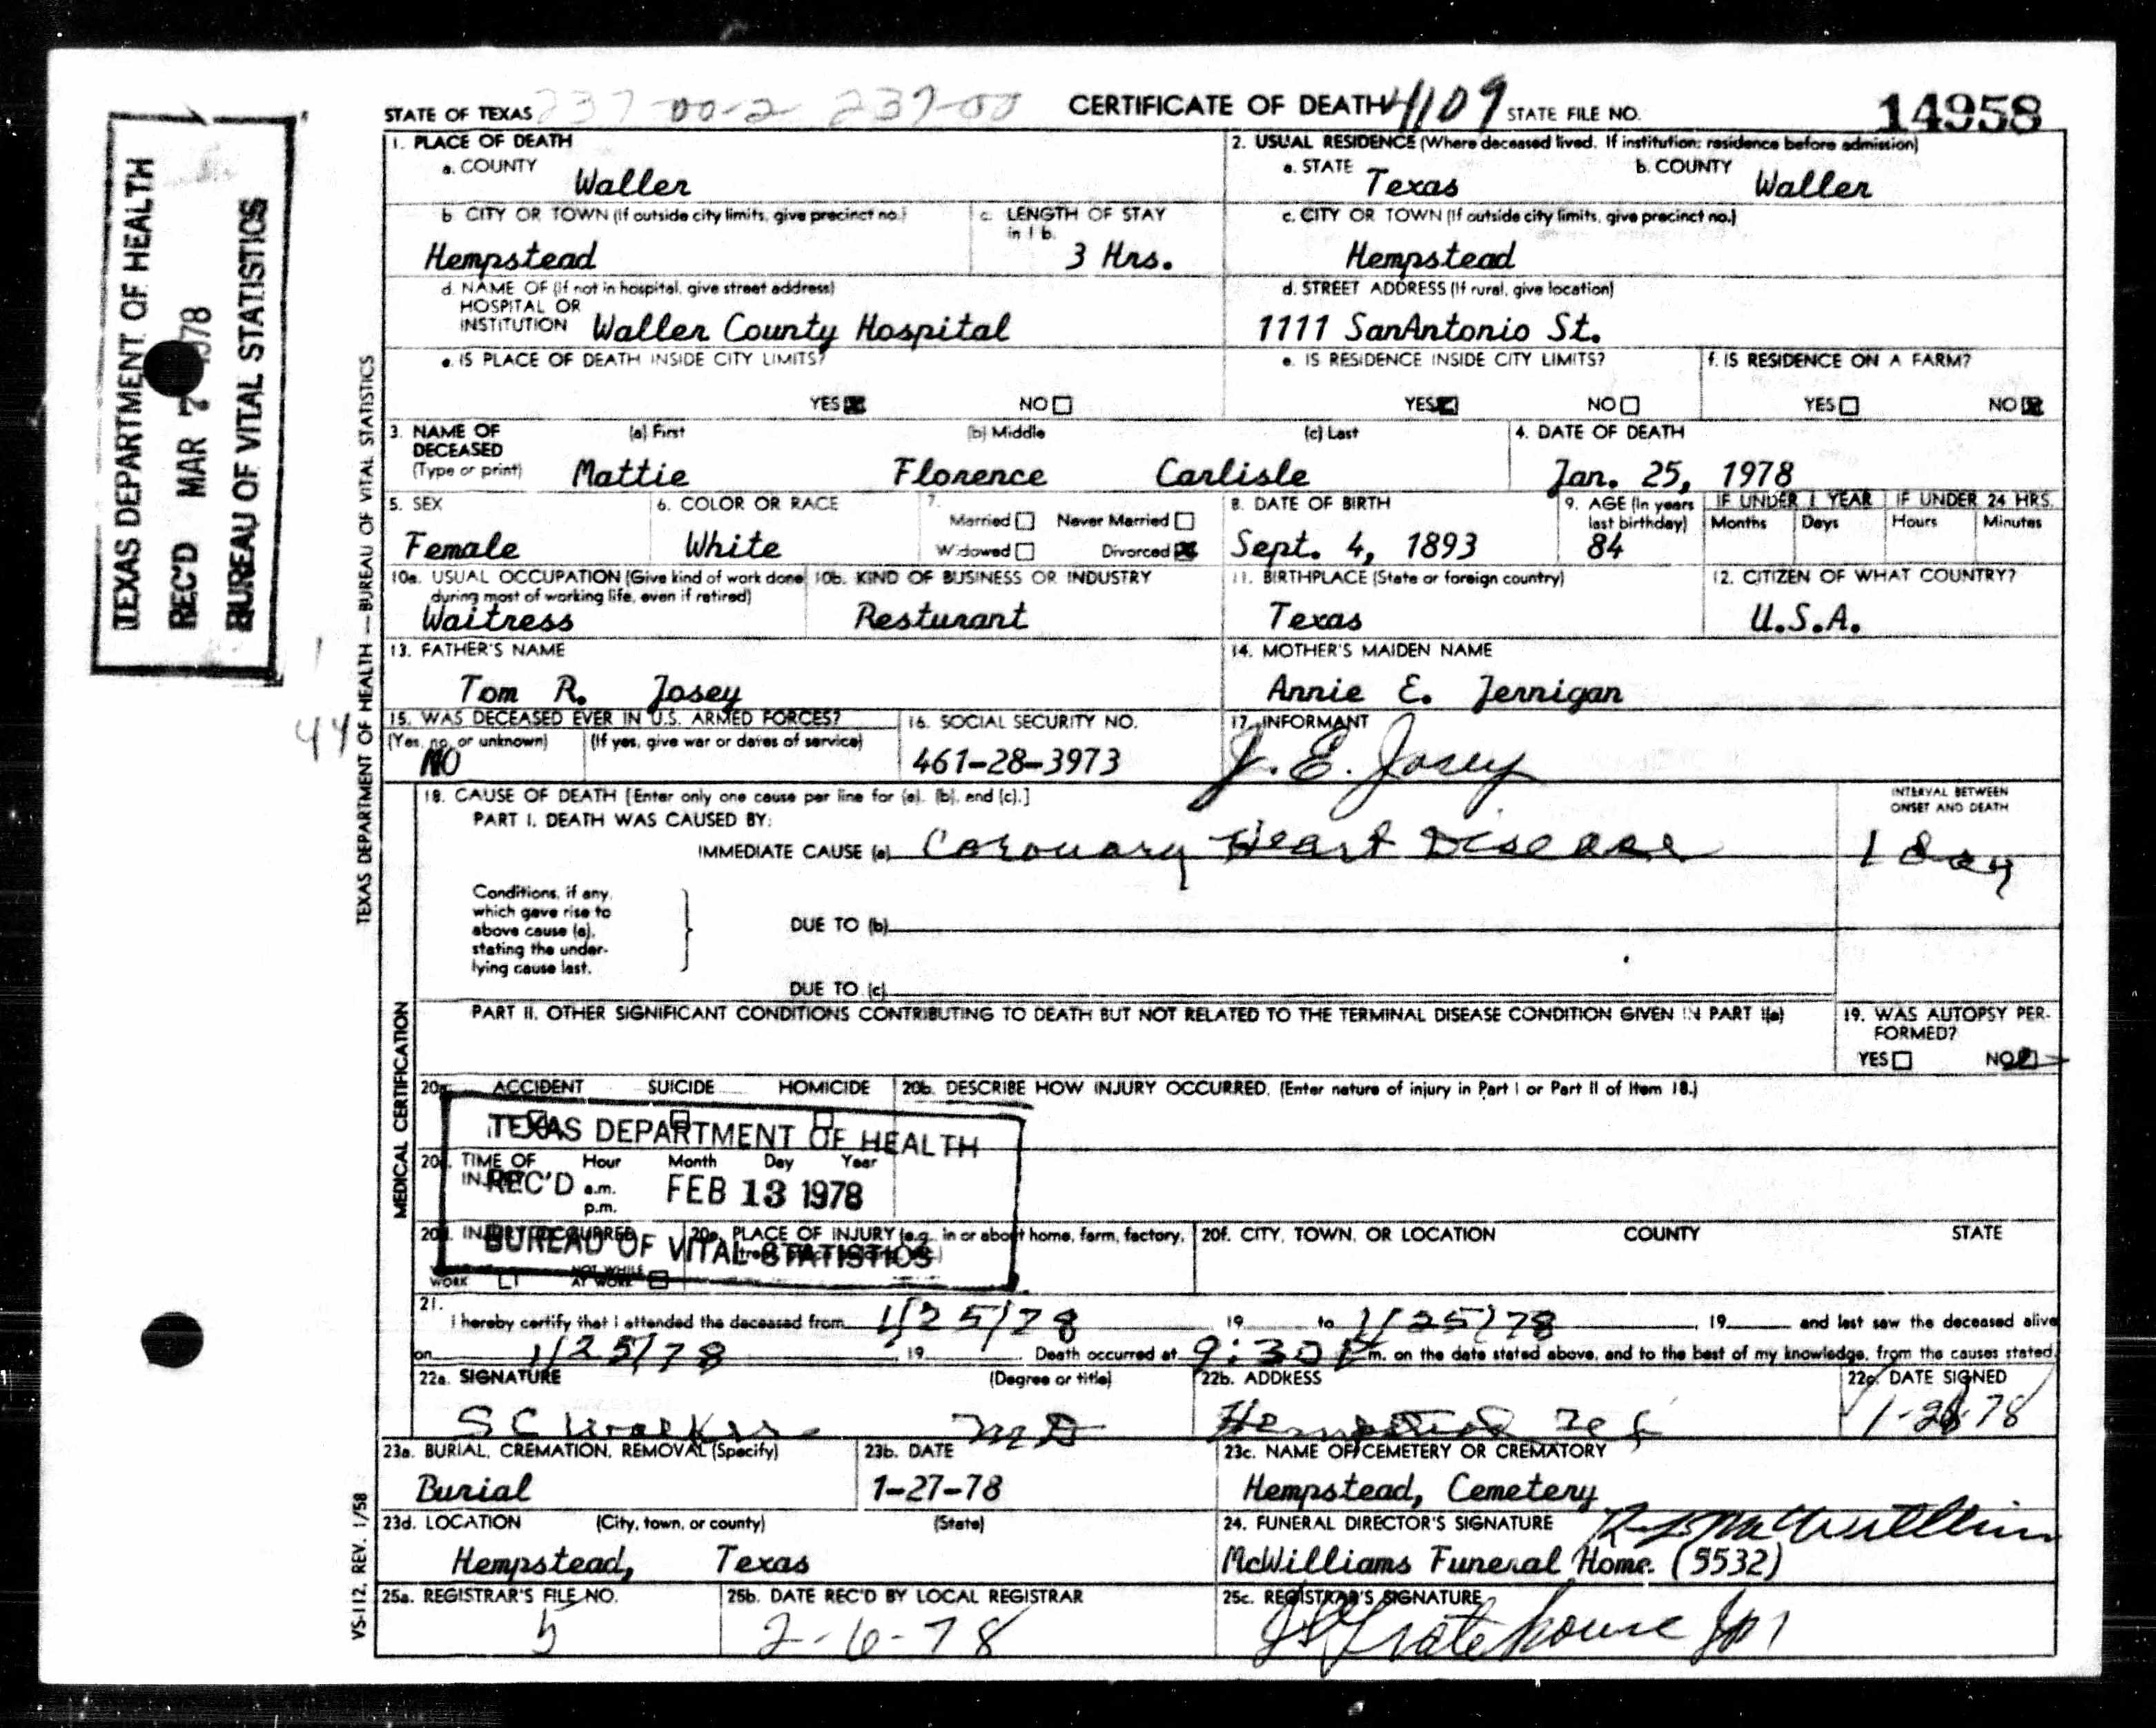 STATE OF TEXAS 237-00-2 237-00 CERTIFICATE OF DEATH 4109 STATE FILE NO. 14958
TEXAS DEPARTMENT OF HEALTH
REC'D MAR 7 1978
BUREAU OF VITAL STATISTICS
1. PLACE OF DEATH
a. COUNTY Waller
2. USUAL RESIDENCE (Where deceased lived. If institution: residence before admission)
a. STATE Texas b. COUNTY Waller
b CITY OR TOWN (If outside city limits, give precinct no.)
Hempstead
c. LENGTH OF STAY in 1 b.
3 Hrs.
c. CITY OR TOWN (If outside city limits, give precinct no.)
Hempstead
d. NAME OF (If not in hospital, give street address)
HOSPITAL OR
INSTITUTION Waller County Hospital
d. STREET ADDRESS (If rural, give location)
1111 SanAntonio St.
e. IS PLACE OF DEATH INSIDE CITY LIMITS?
YES NO
e. IS RESIDENCE INSIDE CITY LIMITS?
YES NO
f. IS RESIDENCE ON A FARM?
YES NO
3. NAME OF DECEASED (Type or print)
(a) First (b) Middle (c) Last
Mattie Florence Carlisle
4. DATE OF DEATH
Jan. 25, 1978
5. SEX
Female
6. COLOR OR RACE
White
7.
Married Never Married
Widowed Divorced
8. DATE OF BIRTH
Sept. 4, 1893
9. AGE (In years last birthday)
84
IF UNDER 1 YEAR IF UNDER 24 HRS.
Months Days Hours Minutes
10a. USUAL OCCUPATION (Give kind of work done during most of working life, even if retired)
Waitress
10b. KIND OF BUSINESS OR INDUSTRY
Resturant
11. BIRTHPLACE (State or foreign country)
Texas
12. CITIZEN OF WHAT COUNTRY?
U.S.A.
13. FATHER'S NAME
Tom R. Josey
14. MOTHER'S MAIDEN NAME
Annie E. Jernigan
44
15. WAS DECEASED EVER IN U.S. ARMED FORCES?
(Yes, no, or unknown) (If yes, give war or dates of service)
NO
16. SOCIAL SECURITY NO.
461-28-3973
17. INFORMANT
J. E. Josey
TEXAS DEPARTMENT OF HEALTH — BUREAU OF VITAL STATISTICS
MEDICAL CERTIFICATION
18. CAUSE OF DEATH [Enter only one cause per line for (a), (b), and (c).]
PART I. DEATH WAS CAUSED BY:
IMMEDIATE CAUSE (a) Coronary Heart Disease
INTERVAL BETWEEN
ONSET AND DEATH
1 day
Conditions, if any,
which gave rise to
above cause (a),
stating the under-
lying cause last.
DUE TO (b)
DUE TO (c)
PART II. OTHER SIGNIFICANT CONDITIONS CONTRIBUTING TO DEATH BUT NOT RELATED TO THE TERMINAL DISEASE CONDITION GIVEN IN PART I(a)
19. WAS AUTOPSY PER-
FORMED?
YES NO
20a. ACCIDENT SUICIDE HOMICIDE
20b. DESCRIBE HOW INJURY OCCURRED. (Enter nature of injury in Part I or Part II of Item 18.)
TEXAS DEPARTMENT OF HEALTH
20c. TIME OF INJURY Hour Month Day Year
a.m.
p.m.
REC'D FEB 13 1978
20d. INJURY OCCURRED
WORK NOT WHILE AT WORK
20e. PLACE OF INJURY (e.g., in or about home, farm, factory,
BUREAU OF VITAL STATISTICS
20f. CITY, TOWN, OR LOCATION COUNTY STATE
21.
I hereby certify that I attended the deceased from 1/25/78, 19 to 1/25/78, 19 and last saw the deceased alive
on 1/25/78, 19 . Death occurred at 9:30 P m. on the date stated above, and to the best of my knowledge, from the causes stated.
22a. SIGNATURE (Degree or title)
S C Walker MD
22b. ADDRESS
Hempstead Tex
22c. DATE SIGNED
23a. BURIAL, CREMATION, REMOVAL (Specify)
Burial
23b. DATE
1-27-78
23c. NAME OF CEMETERY OR CREMATORY
Hempstead, Cemetery
23d. LOCATION (City, town, or county) (State)
Hempstead, Texas
24. FUNERAL DIRECTOR'S SIGNATURE
McWilliams Funeral Home. (5532)
25a. REGISTRAR'S FILE NO.
5
25b. DATE REC'D BY LOCAL REGISTRAR
2-6-78
25c. REGISTRAR'S SIGNATURE
VS-112, REV. 1/58